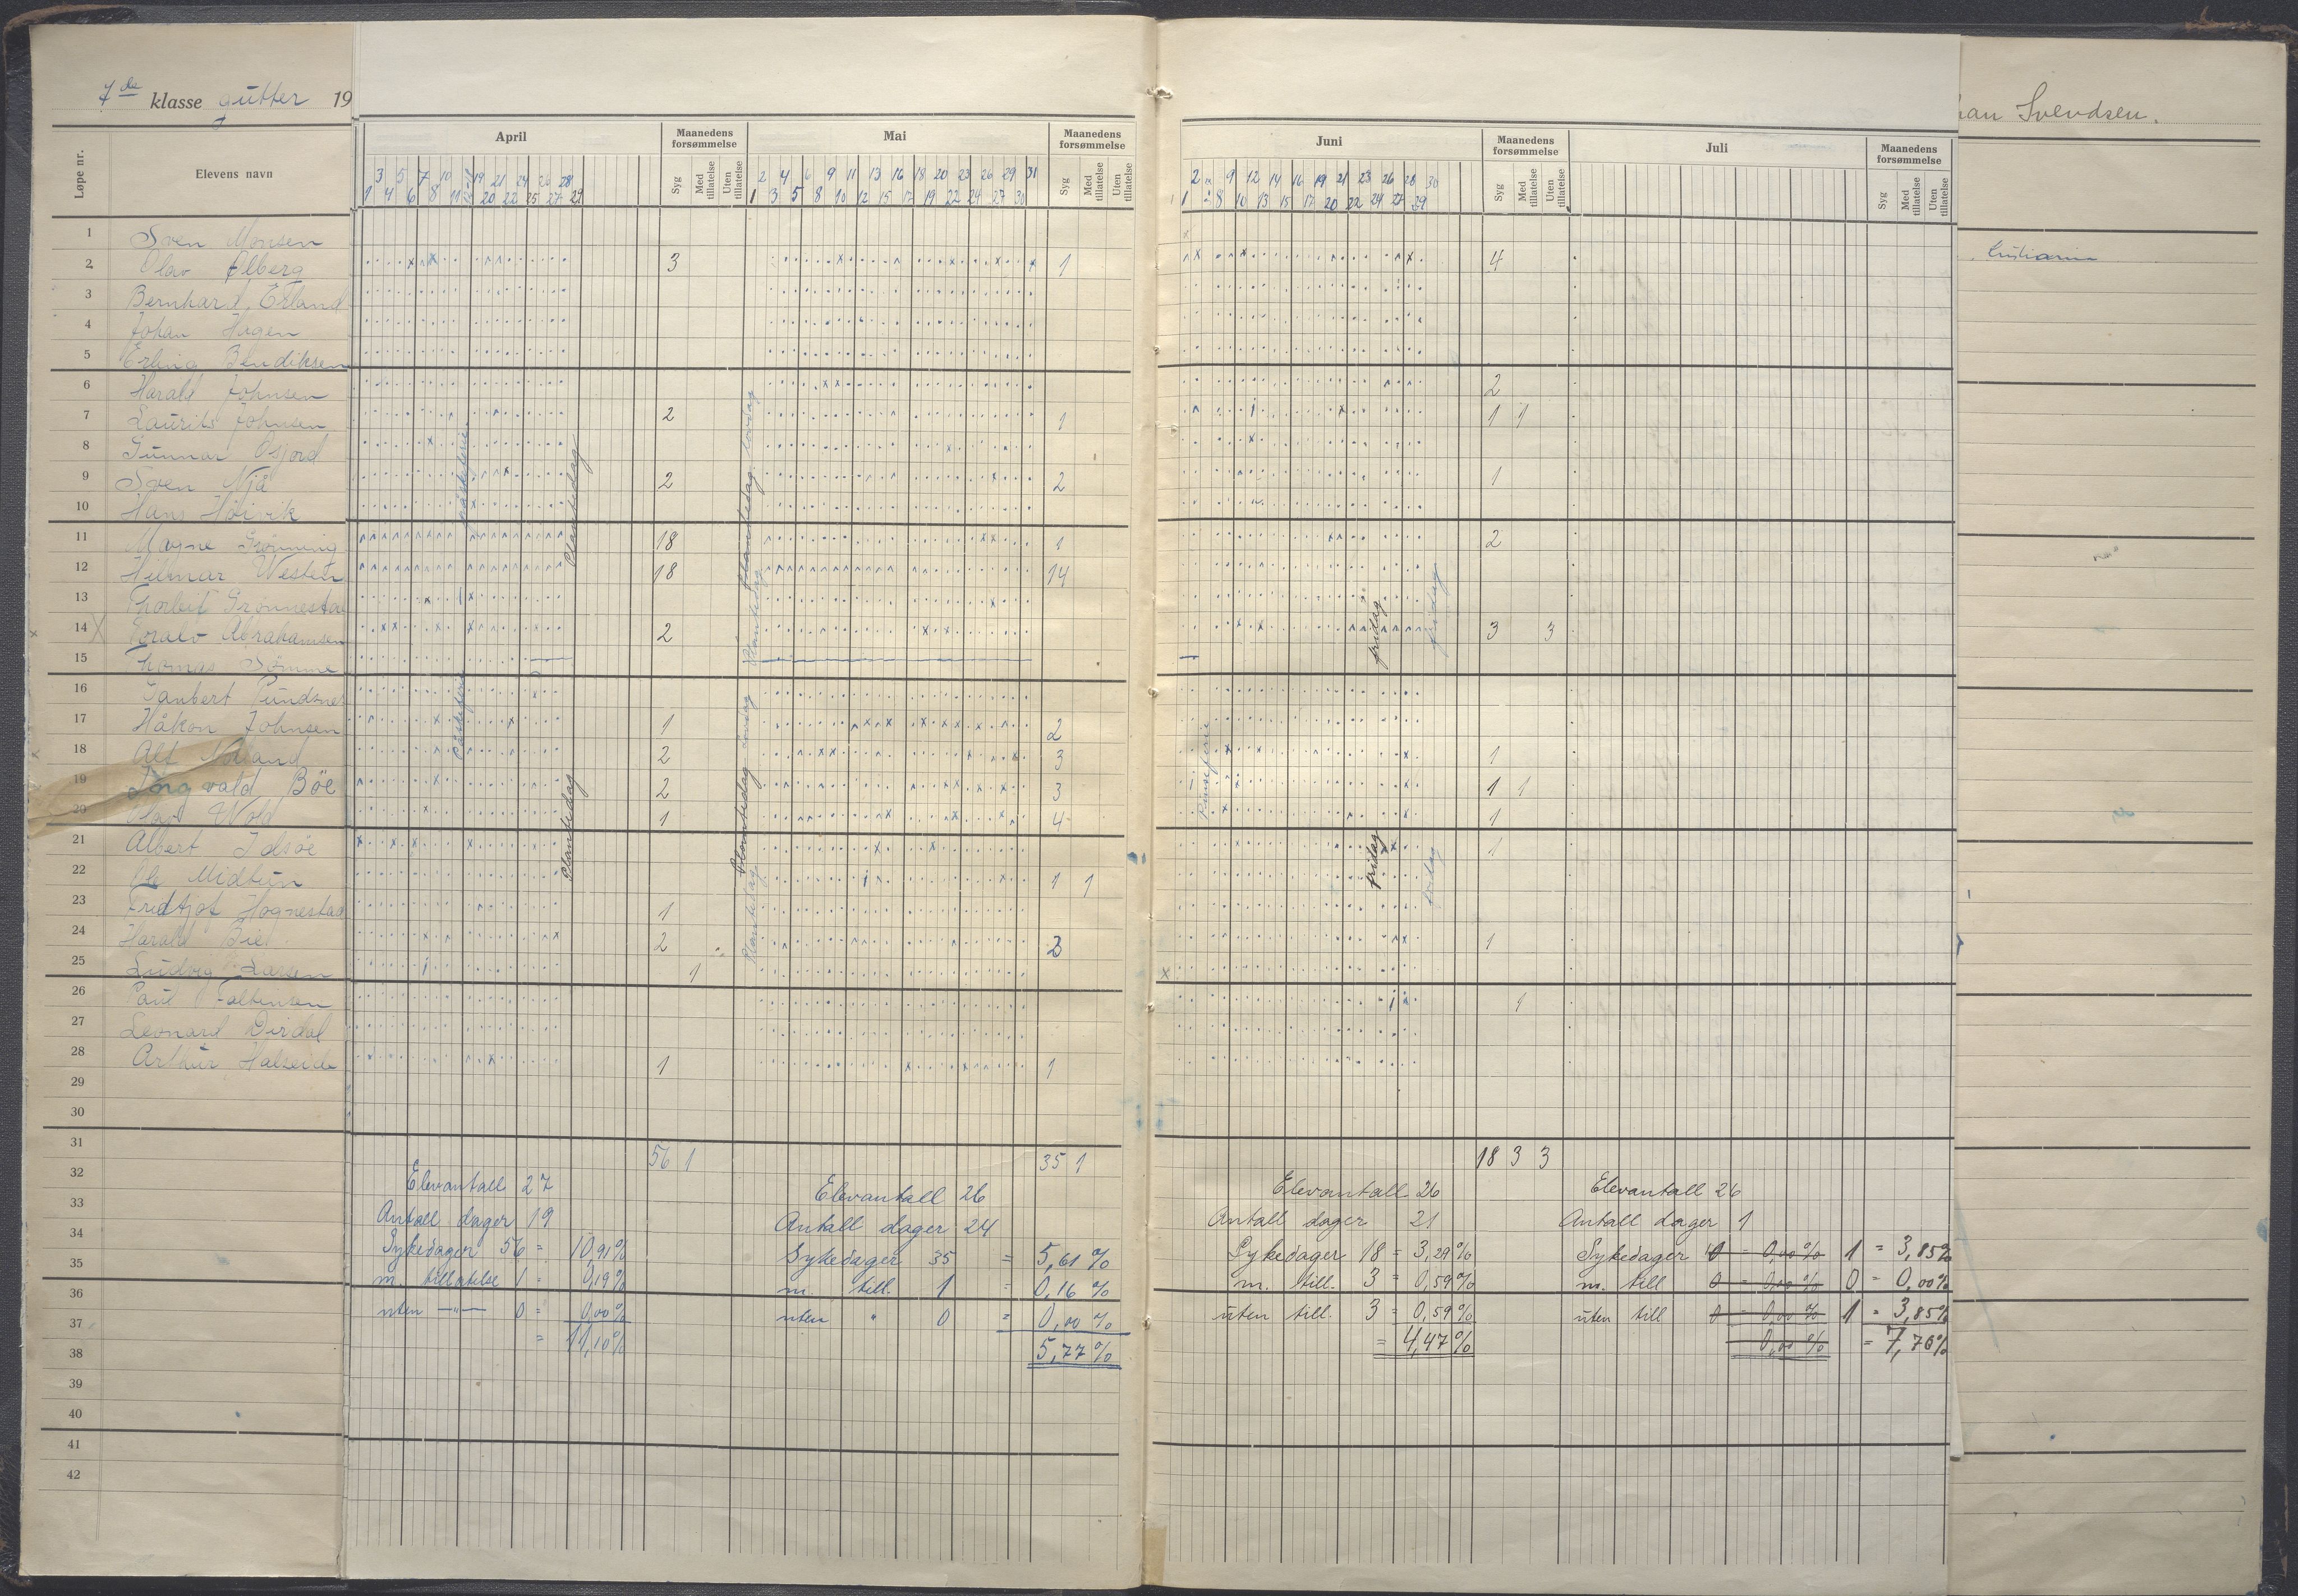 7de klasse gutter 19
April
Maanedens forsømmelse
Mai
Maanedens forsømmelse
Juni
Maanedens forsømmelse
Juli
Maanedens forsømmelse
han Svendsen.
Løpe nr.
Elevens navn
Syg
Med tillatelse
Uten tillatelse
Syg
Med tillatelse
Uten tillatelse
Syg
Med tillatelse
Uten tillatelse
Syg
Med tillatelse
Uten tillatelse
3 5 7 10 19 21 24 26 28
1 4 6 8 11 20 22 25 27 29
2 4 6 9 11 13 16 18 20 23 26 29 31
1 3 5 8 10 12 15 17 19 22 24 27 30
2 9 12 14 16 19 21 23 26 28 30
1 8 10 13 15 17 20 22 24 27 29
1 Sven Monsen
2 Olav Ølberg 3 1 4
3 Bernhard Erland
4 Johan Hagen
5 Erling Bendiksen
6 Harald Johnsen 2
7 Laurits Johnsen 2 1 1 1
8 Gunnar Osjord
9 Sven Njå 2 2 1
10 Hans Høivik
11 Magne Grönning 18 1 2
12 Hilmar Westen 18 14
13 Thorleif Grönnestad
14 Toralv Abrahamsen 2 3 3
15 Thomas Sömme
16
17 Håkon Johnsen 1 2
18 Alf 2 3 1
19 Torgvald Böe 2 3 1 1
20 Olav Wold 1 4 1
21 Albert Idsöe 1
22 Ole Midtun 1 1
23 Fridtjof Hognestad 1
24 Harald Bie 2 3 1
25 Ludvig Larsen 1
26 Paul Falkensen 1
27 Leonard Dirdal
28 Arthur Halseide 1 1
29
30
31
32
33
34
35
36
37
38
39
40
41
42
Påskeferie
Plantedag
Plantedag lovdag
Plantedag
fridag
fridag
Påskeferie
Plantedag
Plantedag Lovdag
Plantedag
Pinseferie
fridag
fridag
56 1
35 1
18 3 3
Elevantall 27
Antall dager 19
Sykedager 56 = 10,91%
m. tillatelse 1 = 0,19%
uten —"— 0 = 0,00%
= 11,10%
Elevantall 26
Antall dager 24
Sykedager 35 = 5,61%
m. till. 1 = 0,16%
uten " 0 = 0,00%
5,77%
Elevantall 26
Antall dager 21
Sykedager 18 = 3,29%
m. till. 3 = 0,59%
uten till. 3 = 0,59%
= 4,47%
Elevantall 26
Antall dager 1
Sykedager 0 = 0,00% 1 = 3,85%
m. till 0 = 0,00% 0 = 0,00%
uten till 0 = 0,00% 1 = 3,85%
0,00% = 7,70%